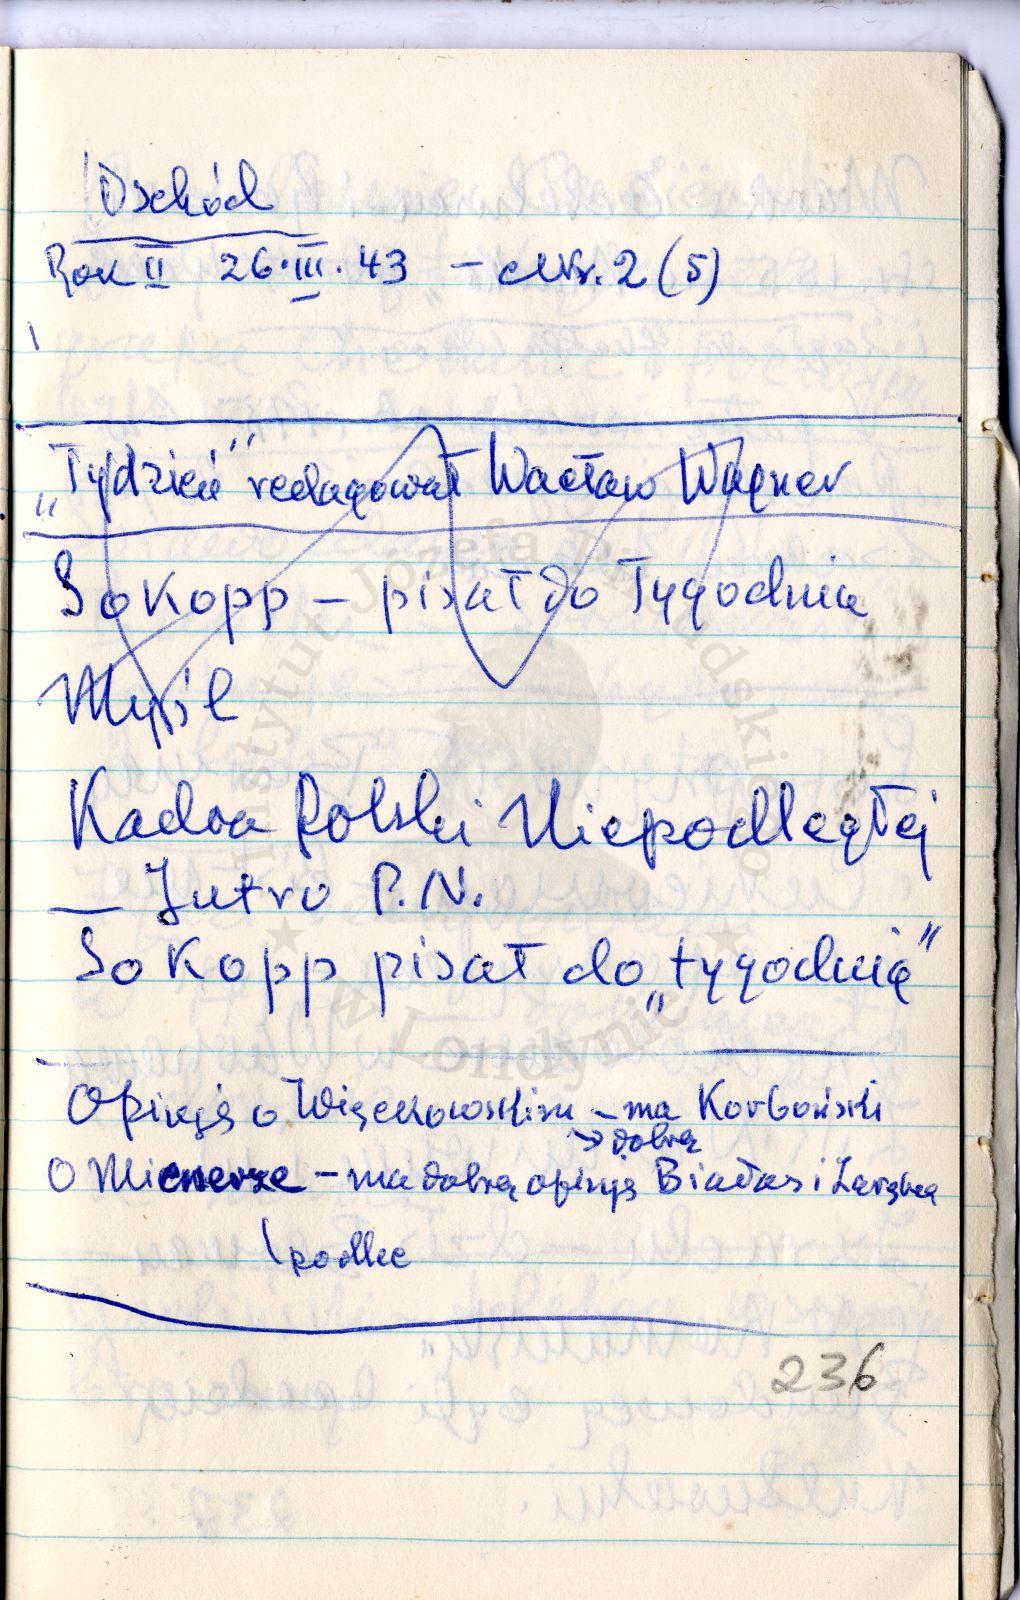 Wschód
Rok II 26.III.43 – Nr. 2 (5)
„Tydzień" redagował Wacław Wagner
So Kopp – pisał do Tygodnia
Myśl
Kadra Polski Niepodległej
— Jutro P.N.
So Kopp pisał do „tygodnia"
Opinię o Więckowskim – ma Korboński
→ dobrą
O – ma dobrą opinię Białas i Zaremba
podlec
236
Instytut Józefa Piłsudskiego
w Londynie